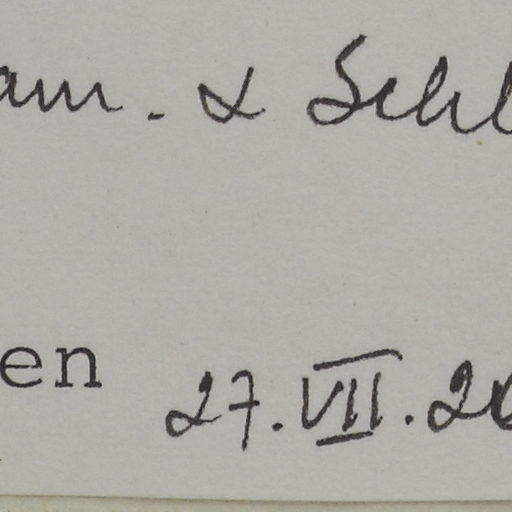 am. & Schl
en 27.VII.20